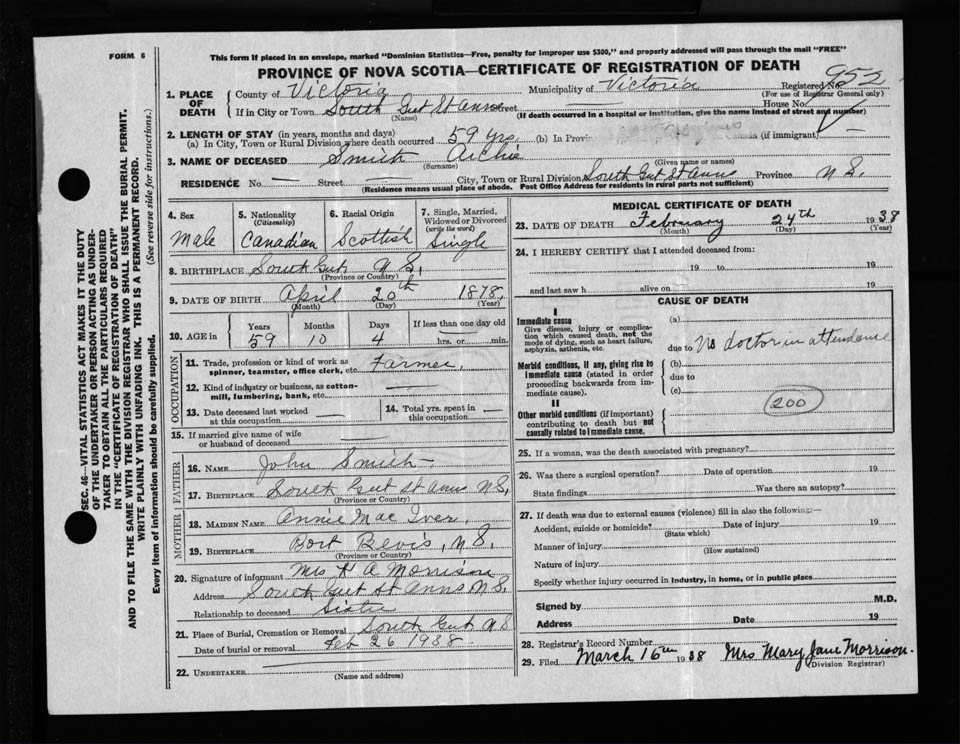 FORM 6
This form if placed in an envelope, marked "Dominion Statistics—Free, penalty for improper use $300," and properly addressed will pass through the mail "FREE"
PROVINCE OF NOVA SCOTIA—CERTIFICATE OF REGISTRATION OF DEATH
Registered No. 952
(For use of Registrar General only)
1. PLACE OF DEATH
County of Victoria Municipality of Victoria
If in City or Town South Gut St anns Street House No.
(Name) (If death occurred in a hospital or institution, give the name instead of street and number)
2. LENGTH OF STAY (in years, months and days)
(a) In City, Town or Rural Division where death occurred 59 yrs. (b) In Provin (if immigrant)
3. NAME OF DECEASED Smith Archie
(Surname) (Given name or names)
RESIDENCE No. — Street — City, Town or Rural Division South Gut St Anns Province N S.
(Residence means usual place of abode. Post Office Address for residents in rural parts not sufficient)
4. Sex
Male
5. Nationality
(Citizenship)
Canadian
6. Racial Origin
Scottish
7. Single, Married, Widowed or Divorced
(write the word)
Single
8. BIRTHPLACE South Gut N S.
(Province or Country)
9. DATE OF BIRTH April 20th 1878,
(Month) (Day) (Year)
10. AGE in
Years Months Days If less than one day old
59 10 4 hrs. or min.
OCCUPATION
11. Trade, profession or kind of work as spinner, teamster, office clerk, etc. Farmer,
12. Kind of industry or business, as cotton-mill, lumbering, bank, etc. —
13. Date deceased last worked at this occupation —
14. Total yrs. spent in this occupation —
15. If married give name of wife or husband of deceased —
FATHER
16. NAME John Smith
17. BIRTHPLACE South Gut St anns N S,
(Province or Country)
MOTHER
18. MAIDEN NAME Annie Mac Iver,
19. BIRTHPLACE Port Bevis, N S.
(Province or Country)
20. Signature of informant Mrs K A Morrison
Address South Gut St Anns N S.
Relationship to deceased Sister
21. Place of Burial, Cremation or Removal South Gut N S
Date of burial or removal Feb 26 1938
22. UNDERTAKER
(Name and address)
MEDICAL CERTIFICATE OF DEATH
23. DATE OF DEATH February 24th 1938
(Month) (Day) (Year)
24. I HEREBY CERTIFY that I attended deceased from:
19 to 19
and last saw h alive on 19
CAUSE OF DEATH
I
Immediate cause
Give disease, injury or complication which caused death, not the mode of dying, such as heart failure, asphyxia, asthenia, etc.
(a)
due to No doctor in attendance
Morbid conditions, if any, giving rise to immediate cause (stated in order proceeding backwards from immediate cause).
(b)
due to
(c)
200
II
Other morbid conditions (if important) contributing to death but not causally related to immediate cause.
25. If a woman, was the death associated with pregnancy?
26. Was there a surgical operation? Date of operation 19
State findings Was there an autopsy?
27. If death was due to external causes (violence) fill in also the following:—
Accident, suicide or homicide? Date of injury 19
(State which)
Manner of injury
(How sustained)
Nature of injury
Specify whether injury occurred in industry, in home, or in public place
Signed by M.D.
Address Date 19
28. Registrar's Record Number
29. Filed March 16th 1938 Mrs Mary Jane Morrison.
(Division Registrar)
SEC. 46—VITAL STATISTICS ACT MAKES IT THE DUTY
OF THE UNDERTAKER OR PERSON ACTING AS UNDER-
TAKER TO OBTAIN ALL THE PARTICULARS REQUIRED
IN THE "CERTIFICATE OF REGISTRATION OF DEATH"
AND TO FILE THE SAME WITH THE DIVISION REGISTRAR WHO SHALL ISSUE THE BURIAL PERMIT.
WRITE PLAINLY WITH UNFADING INK. THIS IS A PERMANENT RECORD.
Every item of information should be carefully supplied. (See reverse side for instructions.)